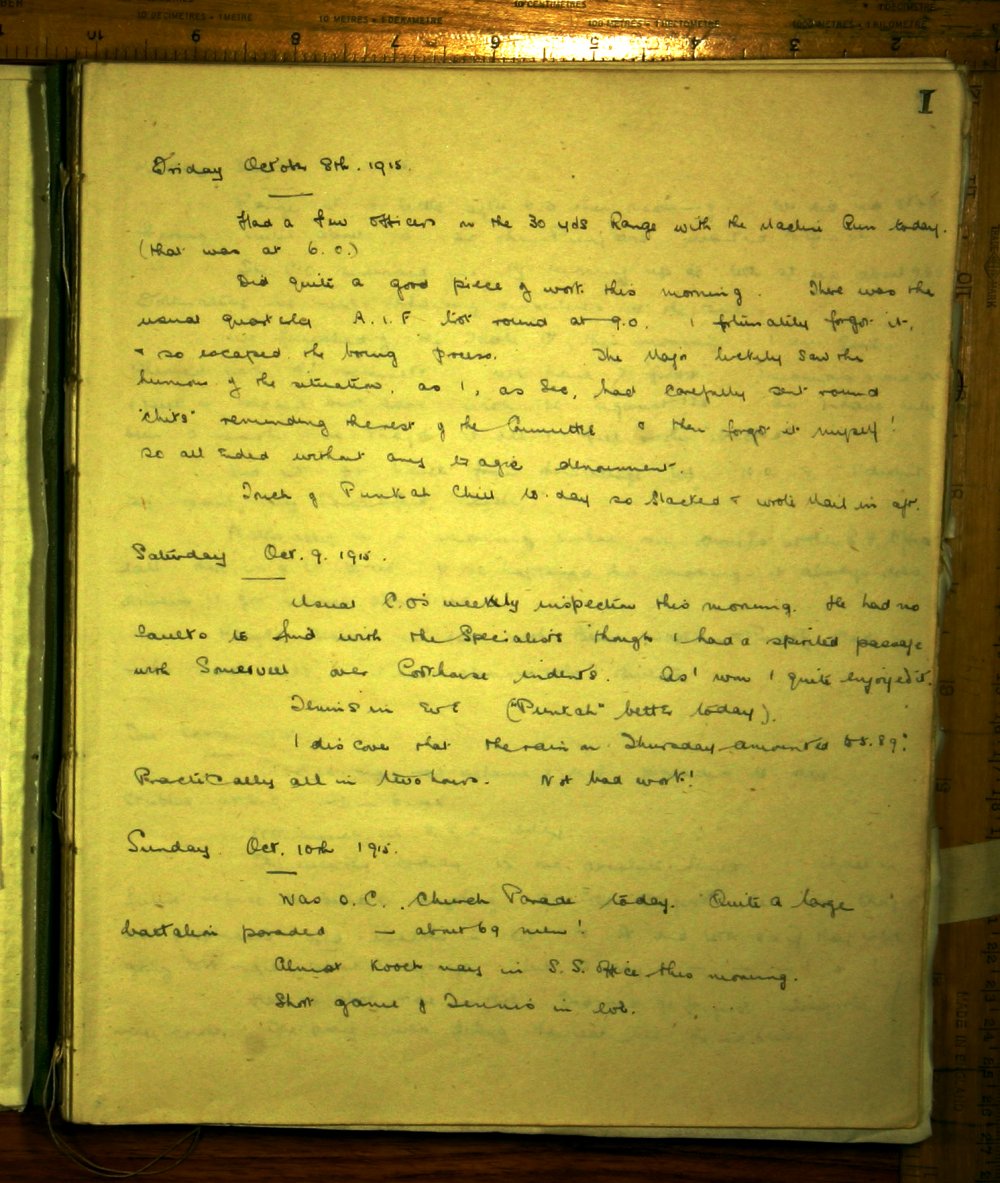 10 CENTIMETRES
10 DECIMETRES = 1 METRE
10 METRES = 1 DEKAMETRE
100 METRES = 1 HECTOMETRE
1000 METRES = 1 KILOMETRE
10 9 8 7 6 5 4 3 2
I
Friday October 8th. 1915.
Had a few officers on the 30 yds Range with the Machine Gun today.
(that was at 6.0.)
Did quite a good piece of work this morning. There was the
usual quarterly A.I.F. bot round at 9.0. I fortunately forgot it,
& so escaped the boring process. The Major luckily saw the
humour of the situation, as I, as Sec, had carefully sent round
"chits" reminding the rest of the Committee & then forgot it myself!
So all ended without any tragic denoument.
Touch of Punkah Chill to-day so slacked & wrote Mail in aft.
Saturday Oct. 9. 1915.
Usual C.O's weekly inspection this morning. He had no
faults to find with the Specialists though I had a spirited passage
with Somervell over Cookhouse indents. As I won I quite enjoyed it.
Tennis in Eve ("Punkah" better today).
I discover that the rain on Thursday amounted to 5.89".
Practically all in two hours. Not bad work!
Sunday Oct. 10th 1915.
Was O.C. Church Parade today. Quite a large
battalion paraded — about 69 men!
Almost Kooch nay in S.S. office this morning.
Short game of Tennis in eve.
MADE IN ENGLAND